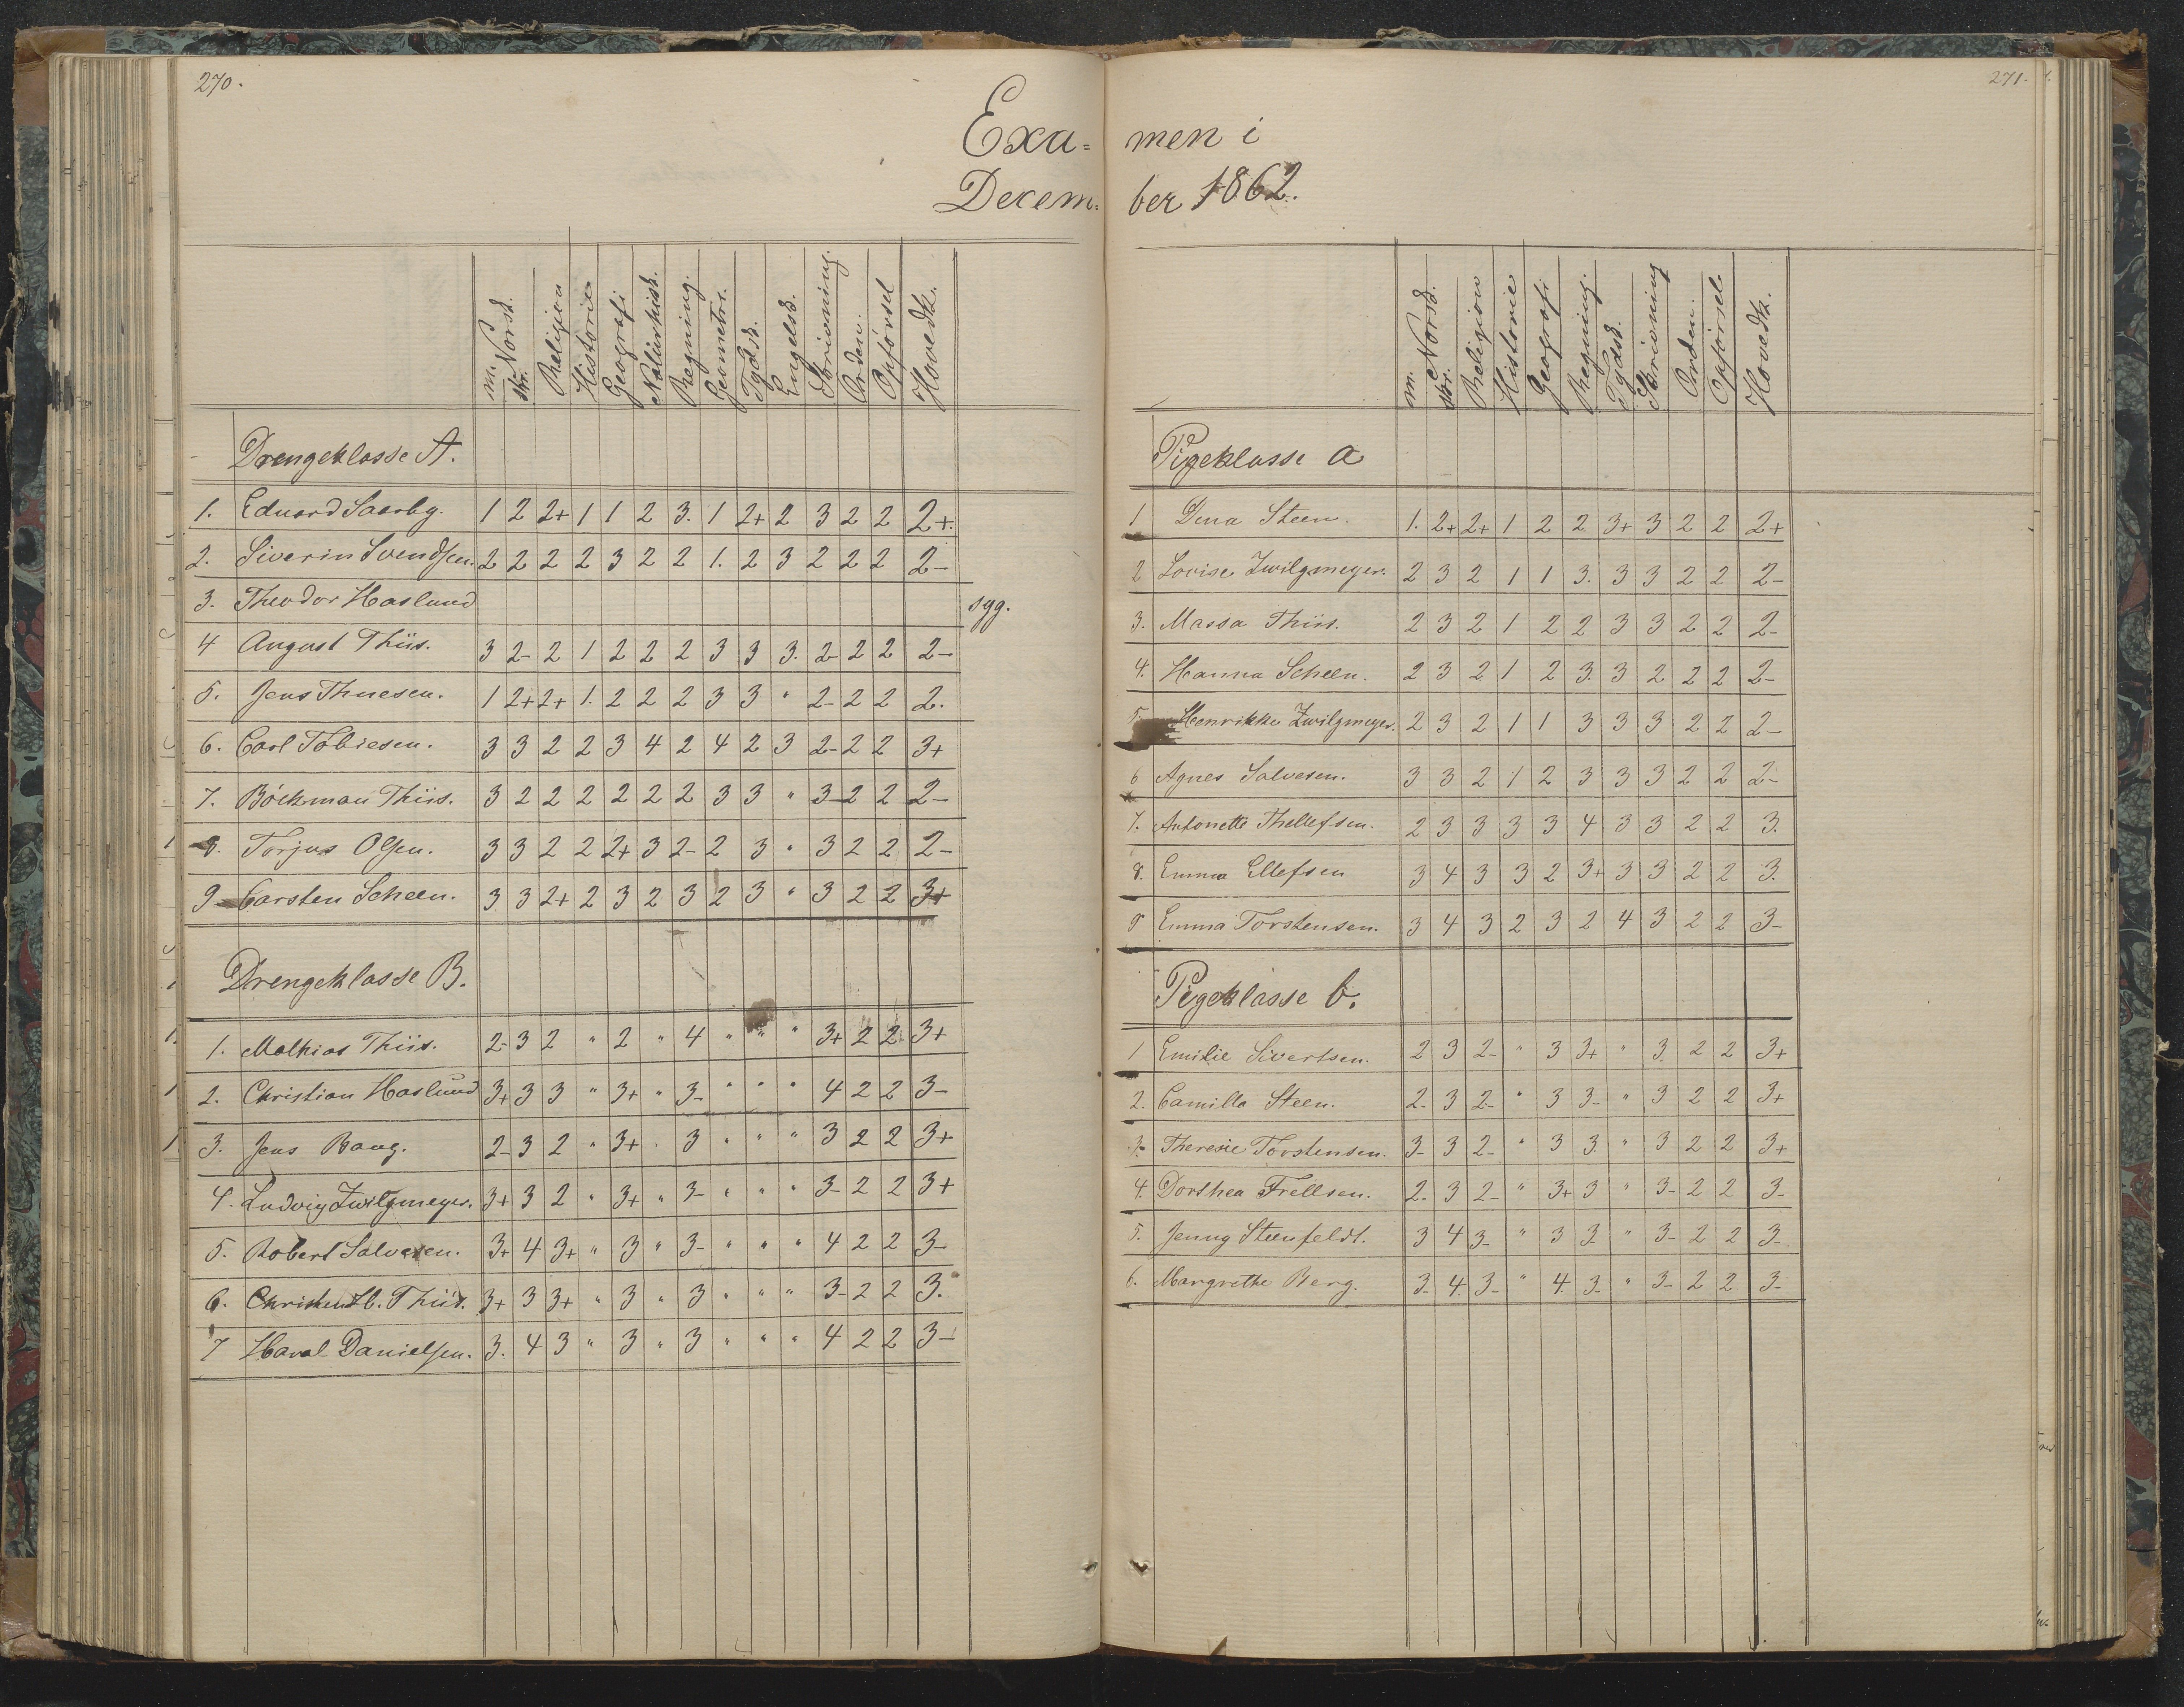 270.
Exa=
Decem=
m. Norsk. skr. Religion Historie Geografi Naturhist. Regning. Geometri. Tydsk. Engelsk. Skrivning. Orden. Opførsel Hovedk.
Drengeklasse A.
1. Eduard Saarbg. 1 2 2+ 1 1 2 3. 1 2+ 2 3 2 2 2+.
2. Siverin Svendsen. 2 2 2 2 3 2 2 1. 2 3 2 2 2 2-
3. Theodor Haslund syg.
4 August Thiis. 3 2- 2 1 2 2 2 3 3 3. 2- 2 2 2-
5. Jens Thuesen. 1 2+ 2+ 1. 2 2 2 3 3 " 2- 2 2 2.
6. Carl Tobiesen. 3 3 2 2 3 4 2 4 2 3 2- 2 2 3+
7. Böckman Thiis. 3 2 2 2 2 2 2 3 3 " 3- 2 2 2-
8. Torjus Olsen. 3 3 2 2 2+ 3 2- 2 3 " 3 2 2 2-
9 Carsten Scheen. 3 3 2+ 2 3 2 3 2 3 " 3 2 2 3+
Drengeklasse B.
1. Mathias Thiis. 2- 3 2 " 2 " 4 " " " 3+ 2 2 3+
2. Christian Haslund 3+ 3 3 " 3+ " 3- " " " 4 2 2 3-
3. Jens Bang. 2- 3 2 " 3+ " 3 " " " 3 2 2 3+
4. Ludvig Zwilgmeyer. 3+ 3 2 " 3+ " 3- " " " 3- 2 2 3+
5. Robert Salvesen. 3+ 4 3+ " 3 " 3- " " " 4 2 2 3-
6. Christen H. Thiis. 3+ 3 3+ " 3 " 3 " " " 3- 2 2 3.
7 Haral Danielsen. 3. 4 3 " 3 " 3 " " " 4 2 2 3-
271.
men i
ber 1862.
m. Norsk. skr. Religion Historie Geografi Regning. Tydsk. Skrivning Orden. Opførsel Hovedk.
Pigeklasse a
1 Dina Steen. 1. 2+ 2+ 1 2 2 3+ 3 2 2 2+
2 Lovise Zwilgmeyer. 2 3 2 1 1 3. 3 3 2 2 2-
3. Massa Thiis. 2 3 2 1 2 2 3 3 2 2 2-
4. Hanna Scheen. 2 3 2 1 2 3. 3 2 2 2 2-
5. Henrikke Zwilgmeyer. 2 3 2 1 1 3 3 3 2 2 2-
6 Agnes Salvesen. 3 3 2 1 2 3 3 3 2 2 2-
7. Antonette Thellefsen. 2 3 3 3 3 4 3 3 2 2 3.
8. Emma Ellefsen 3 4 3 3 2 3+ 3 3 2 2 3.
9 Emma Torstensen. 3 4 3 2 3 2 4 3 2 2 3-
Pigeklasse b.
1 Emilie Sivertsen. 2 3 2- " 3 3+ " 3 2 2 3+
2. Camilla Steen. 2- 3 2- " 3 3- " 3 2 2 3+
3. Theresie Torstensen. 3- 3 2- " 3 3. " 3 2 2 3+
4. Dorthea Frellsen. 2- 3 2- " 3+ 3 " 3- 2 2 3-
5. Jenny Steenfeldt. 3 4 3- " 3 3- " 3- 2 2 3-
6. Margrethe Berg. 3- 4. 3- " 4. 3- " 3- 2 2 3-